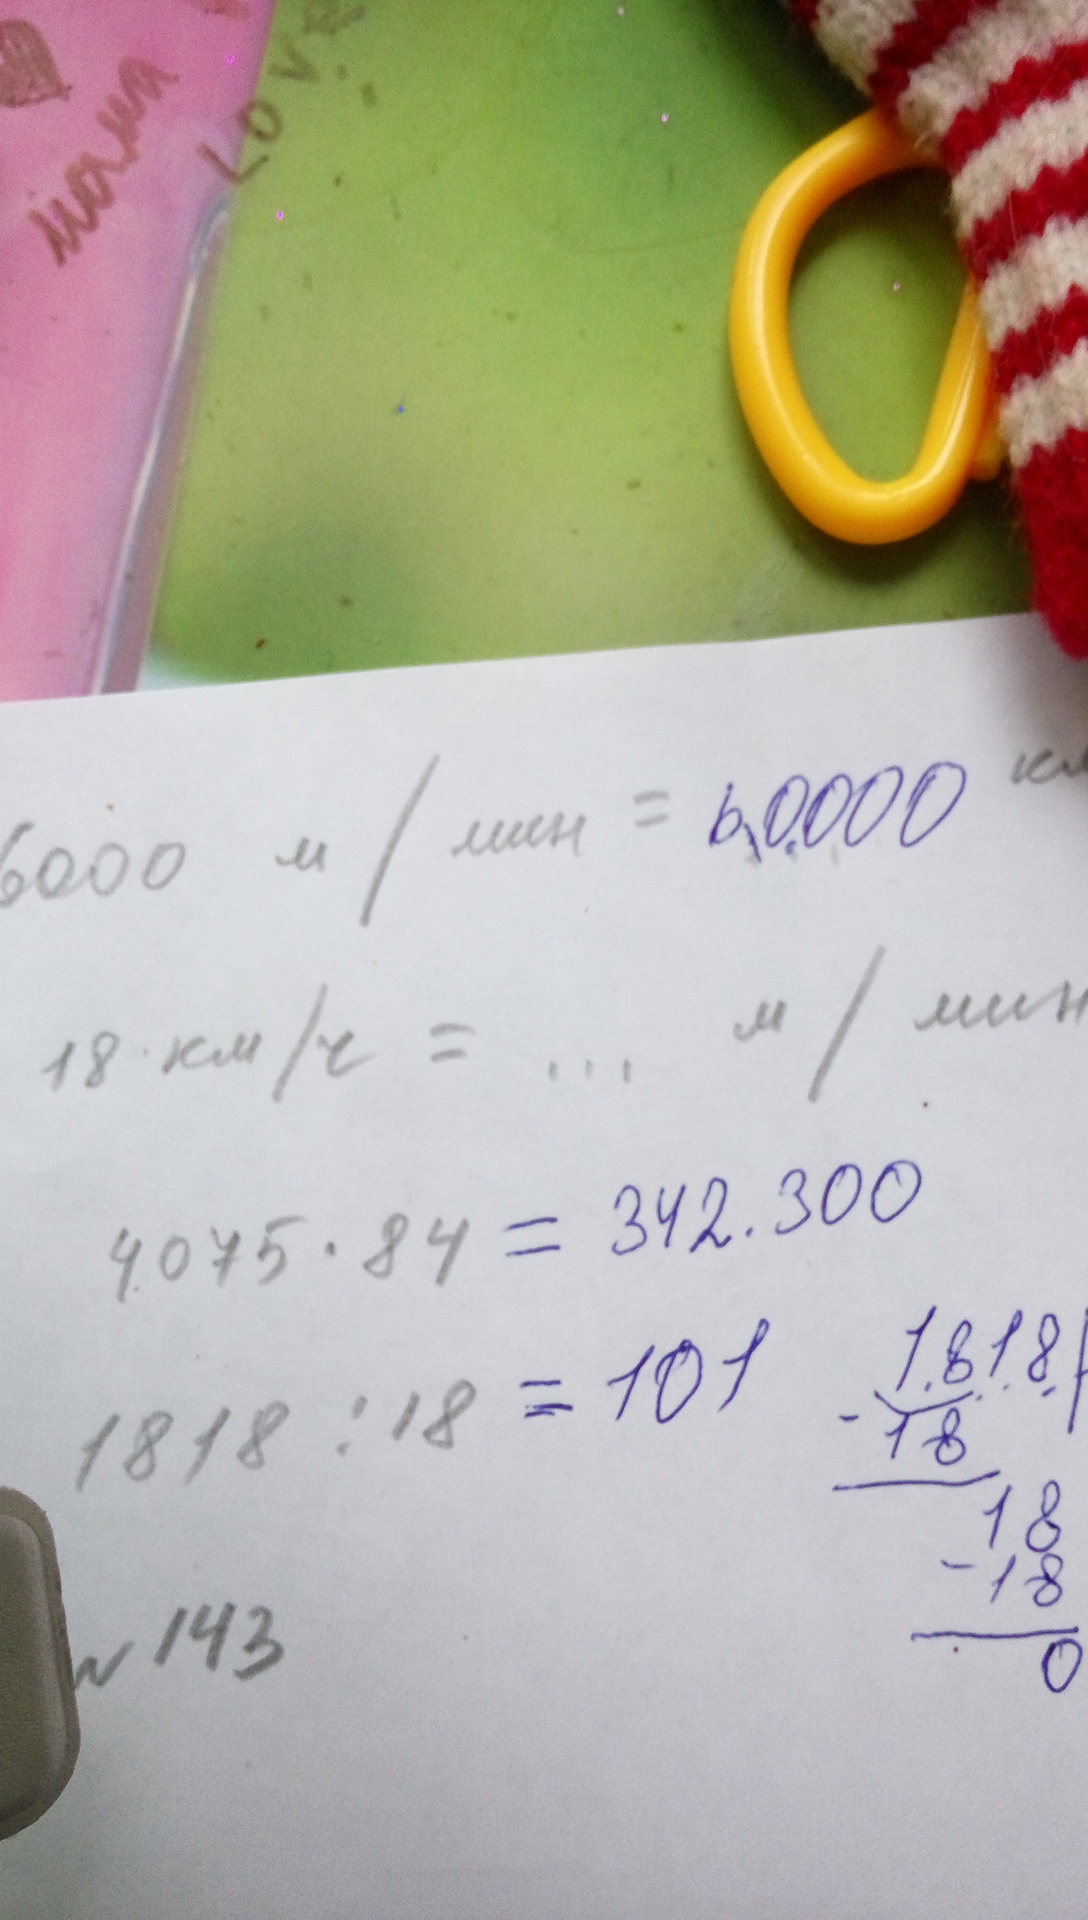 мама
LOVE
6000 м/мин = 60.000 км
18 км/ч = ... м/мин
4075 · 84 = 342.300
1818 : 18 = 101
1818
- 18
18
- 18
0
№ 143